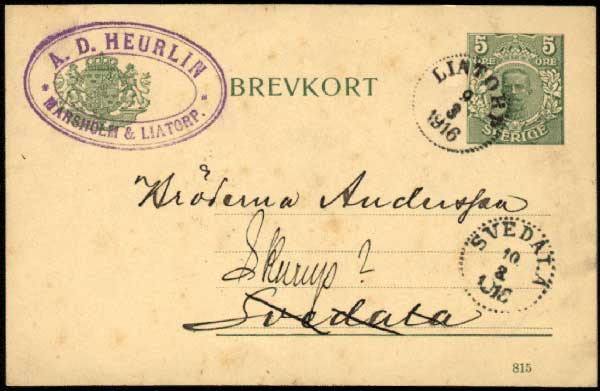 A. D. HEURLIN
* MARSHOLM & LIATORP. *
BREVKORT
5 5
ÖRE ÖRE
SVERIGE
LIATORP
9
3
1916
Bröderna Andersson
Skurup?
Svedala
SVEDALA
10
3
1916
815